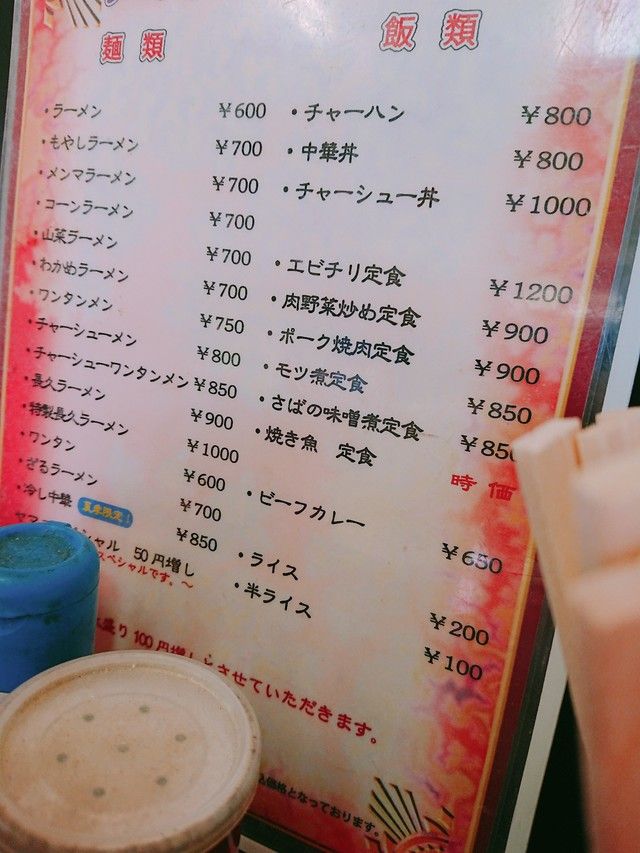 麺類
・ラーメン ￥600
・もやしラーメン ￥700
・メンマラーメン ￥700
・コーンラーメン ￥700
・山菜ラーメン ￥700
・わかめラーメン ￥700
・ワンタンメン ￥750
・チャーシューメン ￥800
・チャーシューワンタンメン ￥850
・長久ラーメン ￥900
・特製長久ラーメン ￥1000
・ワンタン ￥600
・ざるラーメン ￥700
・冷し中華 夏季限定！ ￥850
ャル 50円増し
スペシャルです。～
飯類
・チャーハン ￥800
・中華丼 ￥800
・チャーシュー丼 ￥1000
・エビチリ定食 ￥1200
・肉野菜炒め定食 ￥900
・ポーク焼肉定食 ￥900
・モツ煮定食 ￥850
・さばの味噌煮定食 ￥850
・焼き魚 定食 時価
・ビーフカレー ￥650
・ライス ￥200
・半ライス ￥100
盛り100円増しとさせていただきます。
価格となっております。